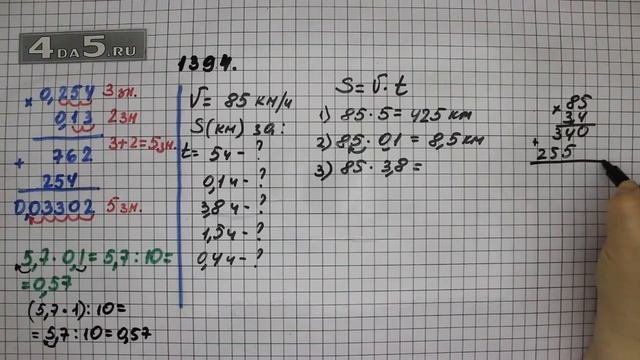 4DA5.RU
1394.
× 0,254 3 зн.
0,13 2 зн
3+2=5 зн.
+ 762
254
0,03302 5 зн.
5,7 · 0,1 = 5,7 : 10 =
= 0,57
(5,7 · 1) : 10 =
= 5,7 : 10 = 0,57
V = 85 км/ч
S(км) за:
t = 5ч - ?
0,1ч - ?
3,8ч - ?
1,5ч - ?
0,4ч - ?
S = V · t
1) 85 · 5 = 425 км
2) 85 · 0,1 = 8,5 км
3) 85 · 3,8 =
× 85
34
340
+ 255